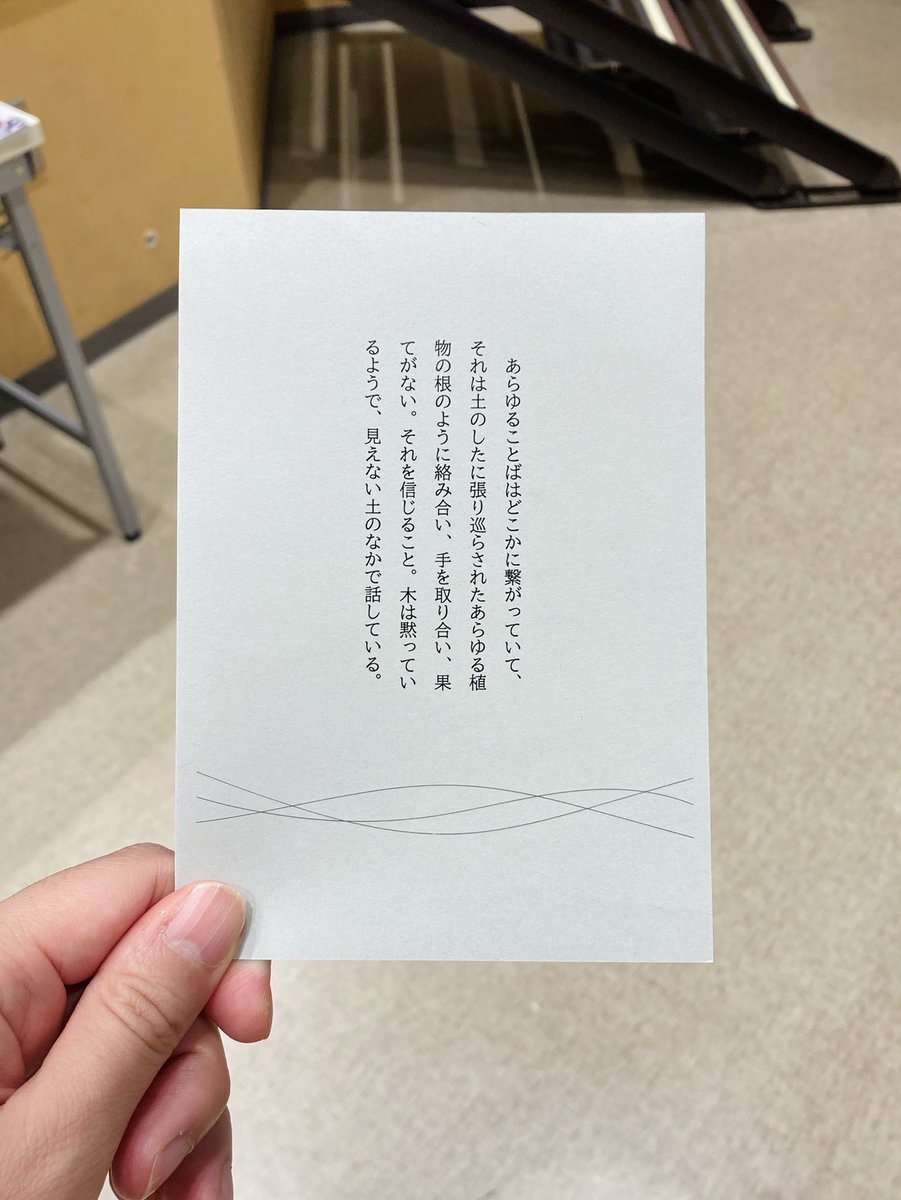 あらゆることばはどこかに繋がっていて、
それは土のしたに張り巡らされたあらゆる植
物の根のように絡み合い、手を取り合い、果
てがない。それを信じること。木は黙ってい
るようで、見えない土のなかで話している。